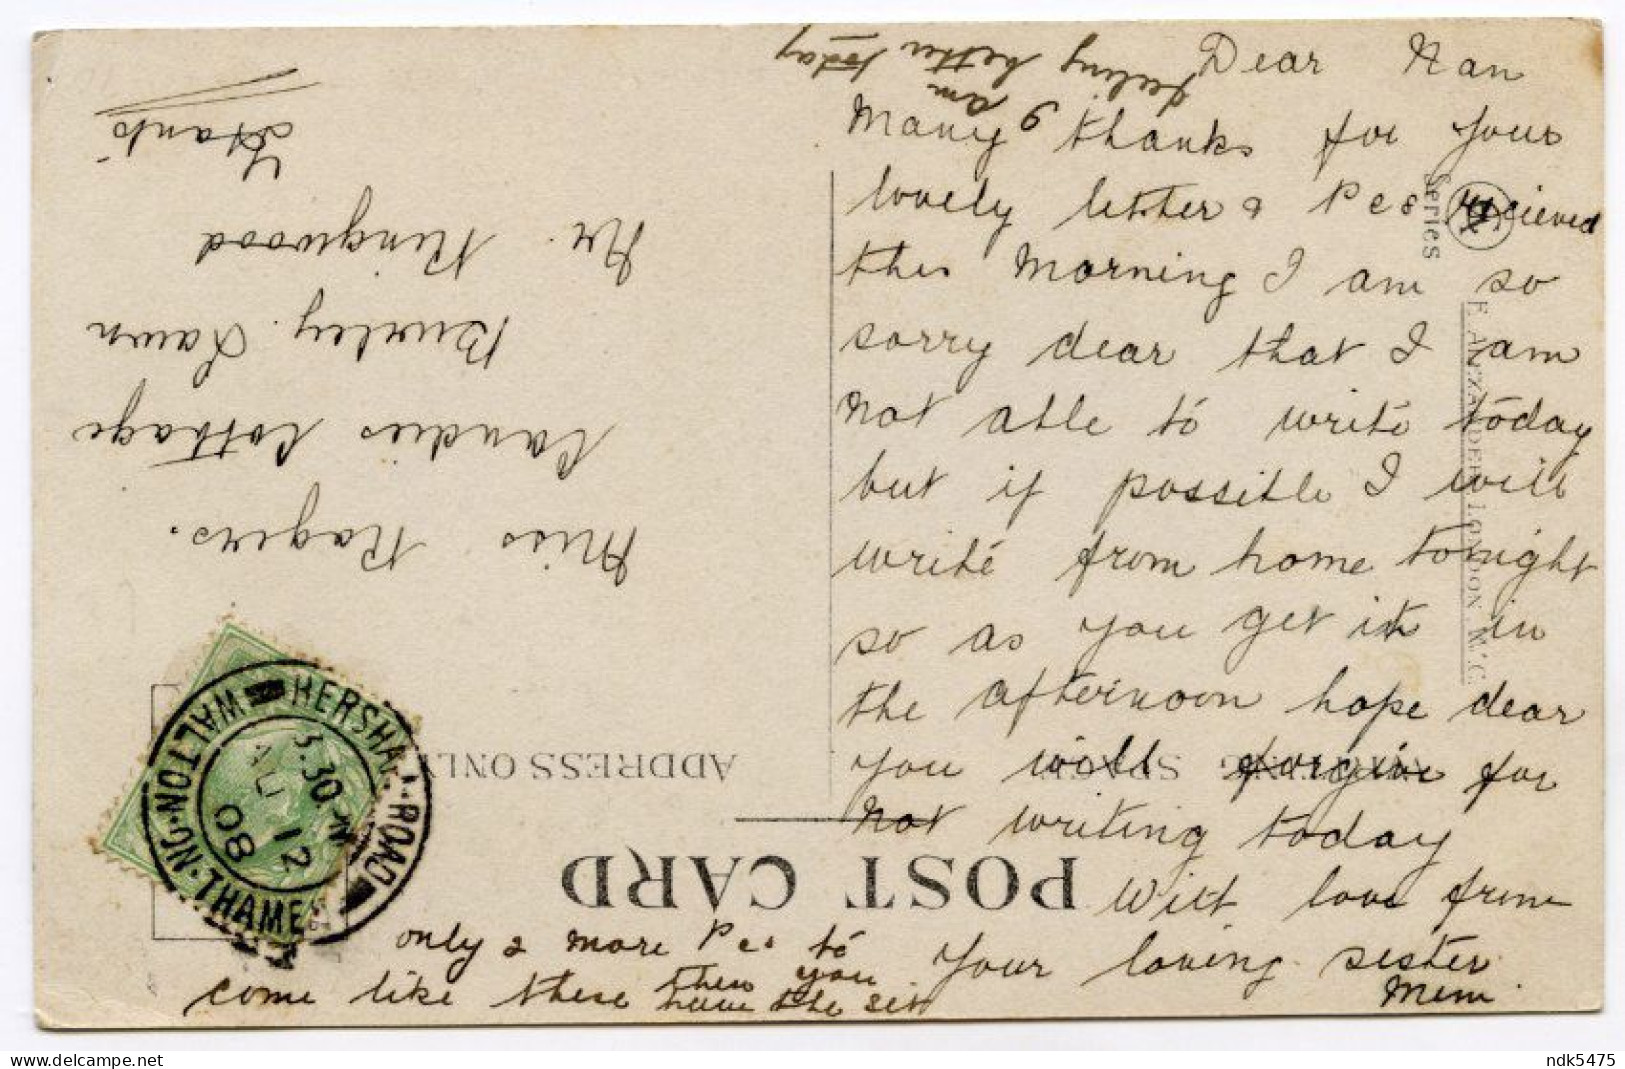 Dear Nan
Many thanks for your
lovely letter & Pcs recieved
this morning I am so
sorry dear that I am
not able to write today
but if possible I will
write from home tonight
so as you get it in
the afternoon hope dear
you will forgive for
not writing today
With love from
Your loving sister
Mem.
only 2 more Pcs to
come like these then you
have the set
I am
feeling better today
Miss Rogers.
Candies Cottage
Burley Lawn
Nr. Ringwood
Hants
POST CARD
WRITING SPACE
ADDRESS ONLY
E. ALEXANDER LONDON W.C.
Series
HERSHAM ROAD
WALTON-ON-THAMES
3.30 PM
AU 12
08
ndk5475